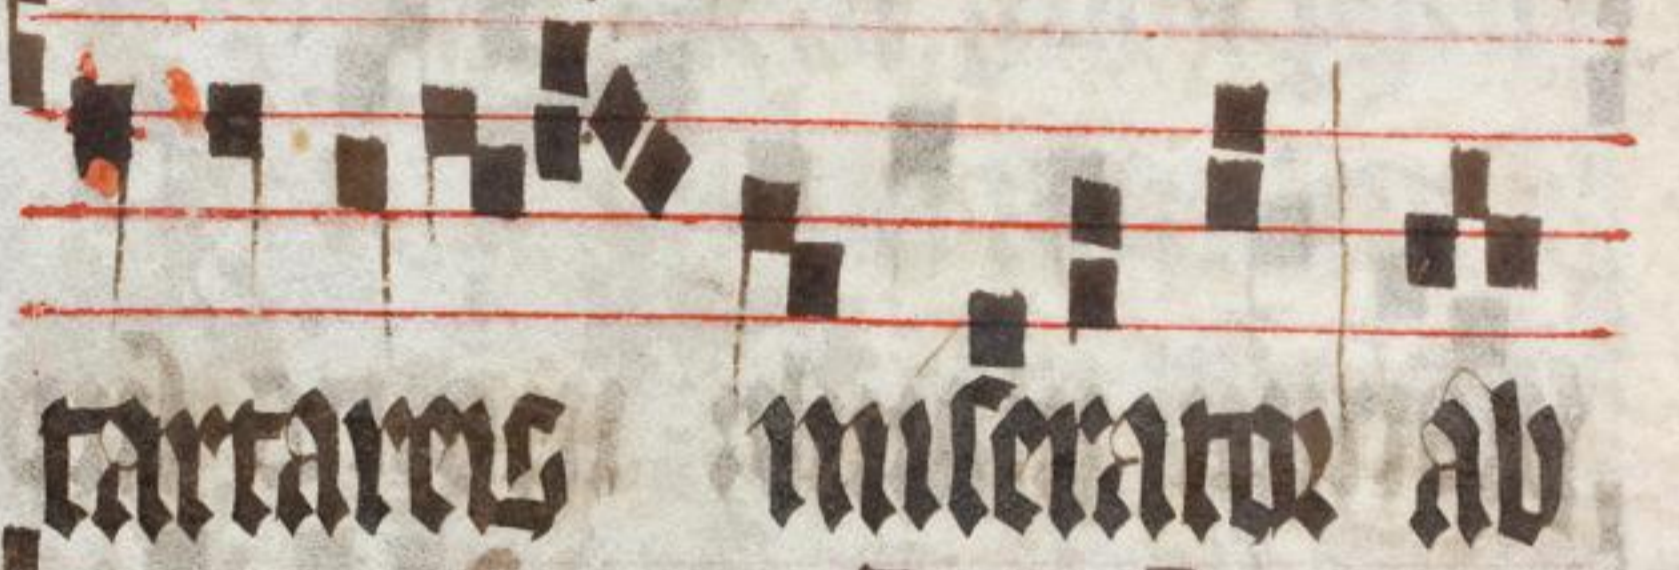 tartareis miserator ab